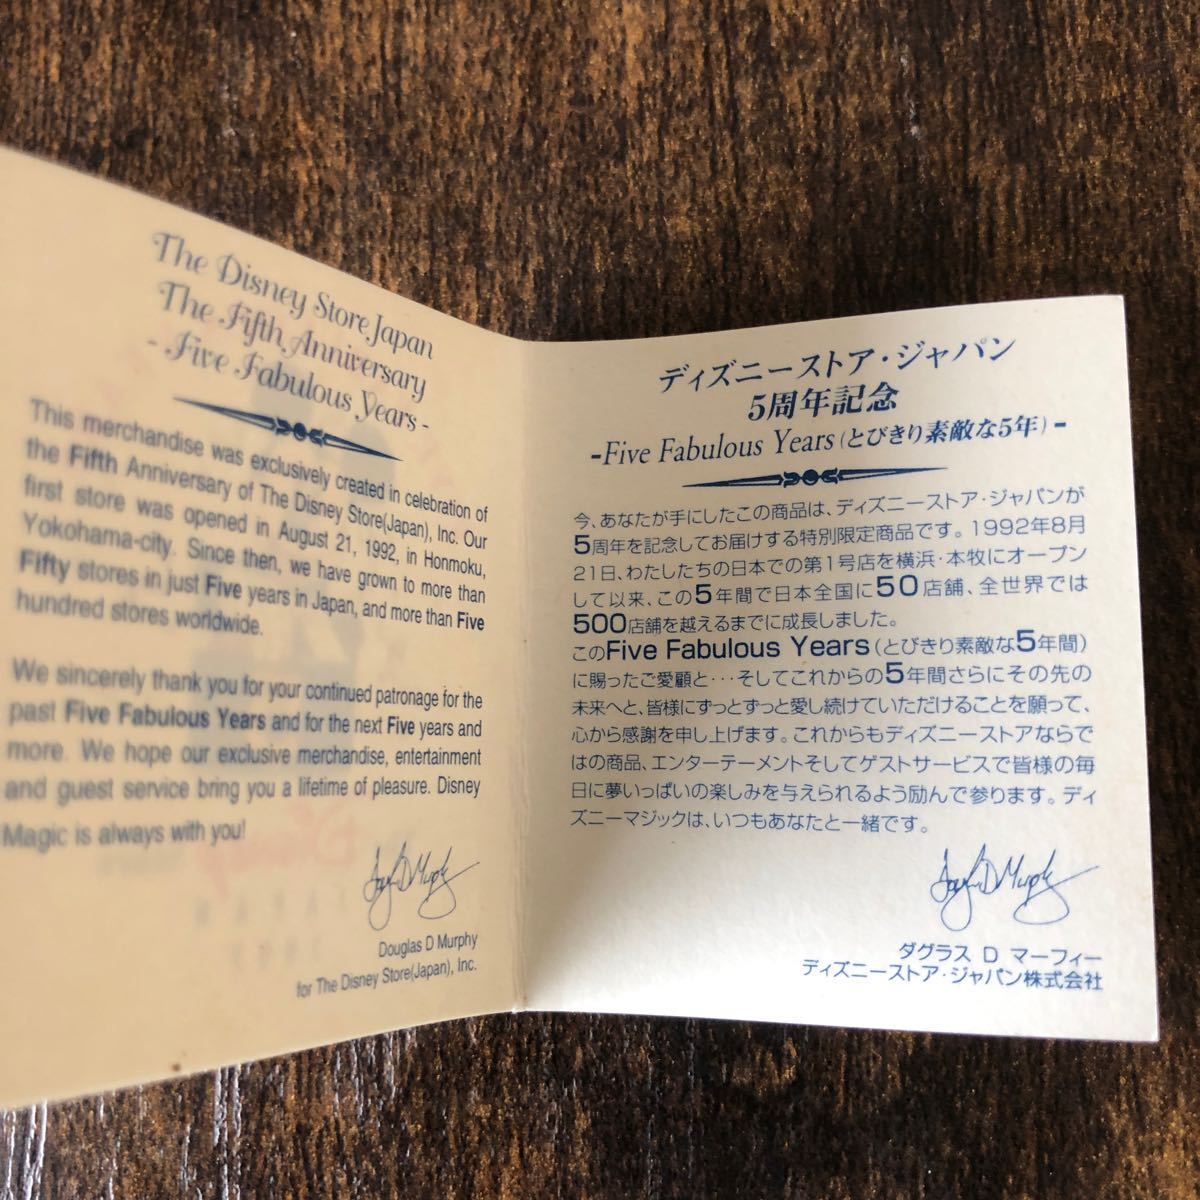 The Disney Store Japan
The Fifth Anniversary
- Five Fabulous Years -
This merchandise was exclusively created in celebration of
the Fifth Anniversary of The Disney Store(Japan), Inc. Our
first store was opened in August 21, 1992, in Honmoku,
Yokohama-city. Since then, we have grown to more than
Fifty stores in just Five years in Japan, and more than Five
hundred stores worldwide.
We sincerely thank you for your continued patronage for the
past Five Fabulous Years and for the next Five years and
more. We hope our exclusive merchandise, entertainment
and guest service bring you a lifetime of pleasure. Disney
Magic is always with you!
Douglas D Murphy
for The Disney Store(Japan), Inc.
ディズニーストア・ジャパン
5周年記念
-Five Fabulous Years(とびきり素敵な5年)-
今、あなたが手にしたこの商品は、ディズニーストア・ジャパンが
5周年を記念してお届けする特別限定商品です。1992年8月
21日、わたしたちの日本での第1号店を横浜・本牧にオープン
して以来、この5年間で日本全国に50店舗、全世界では
500店舗を越えるまでに成長しました。
このFive Fabulous Years(とびきり素敵な5年間)
に賜ったご愛顧と・・・そしてこれからの5年間さらにその先の
未来へと、皆様にずっとずっと愛し続けていただけることを願って、
心から感謝を申し上げます。これからもディズニーストアならで
はの商品、エンターテーメントそしてゲストサービスで皆様の毎
日に夢いっぱいの楽しみを与えられるよう励んで参ります。ディ
ズニーマジックは、いつもあなたと一緒です。
ダグラス D マーフィー
ディズニーストア・ジャパン株式会社